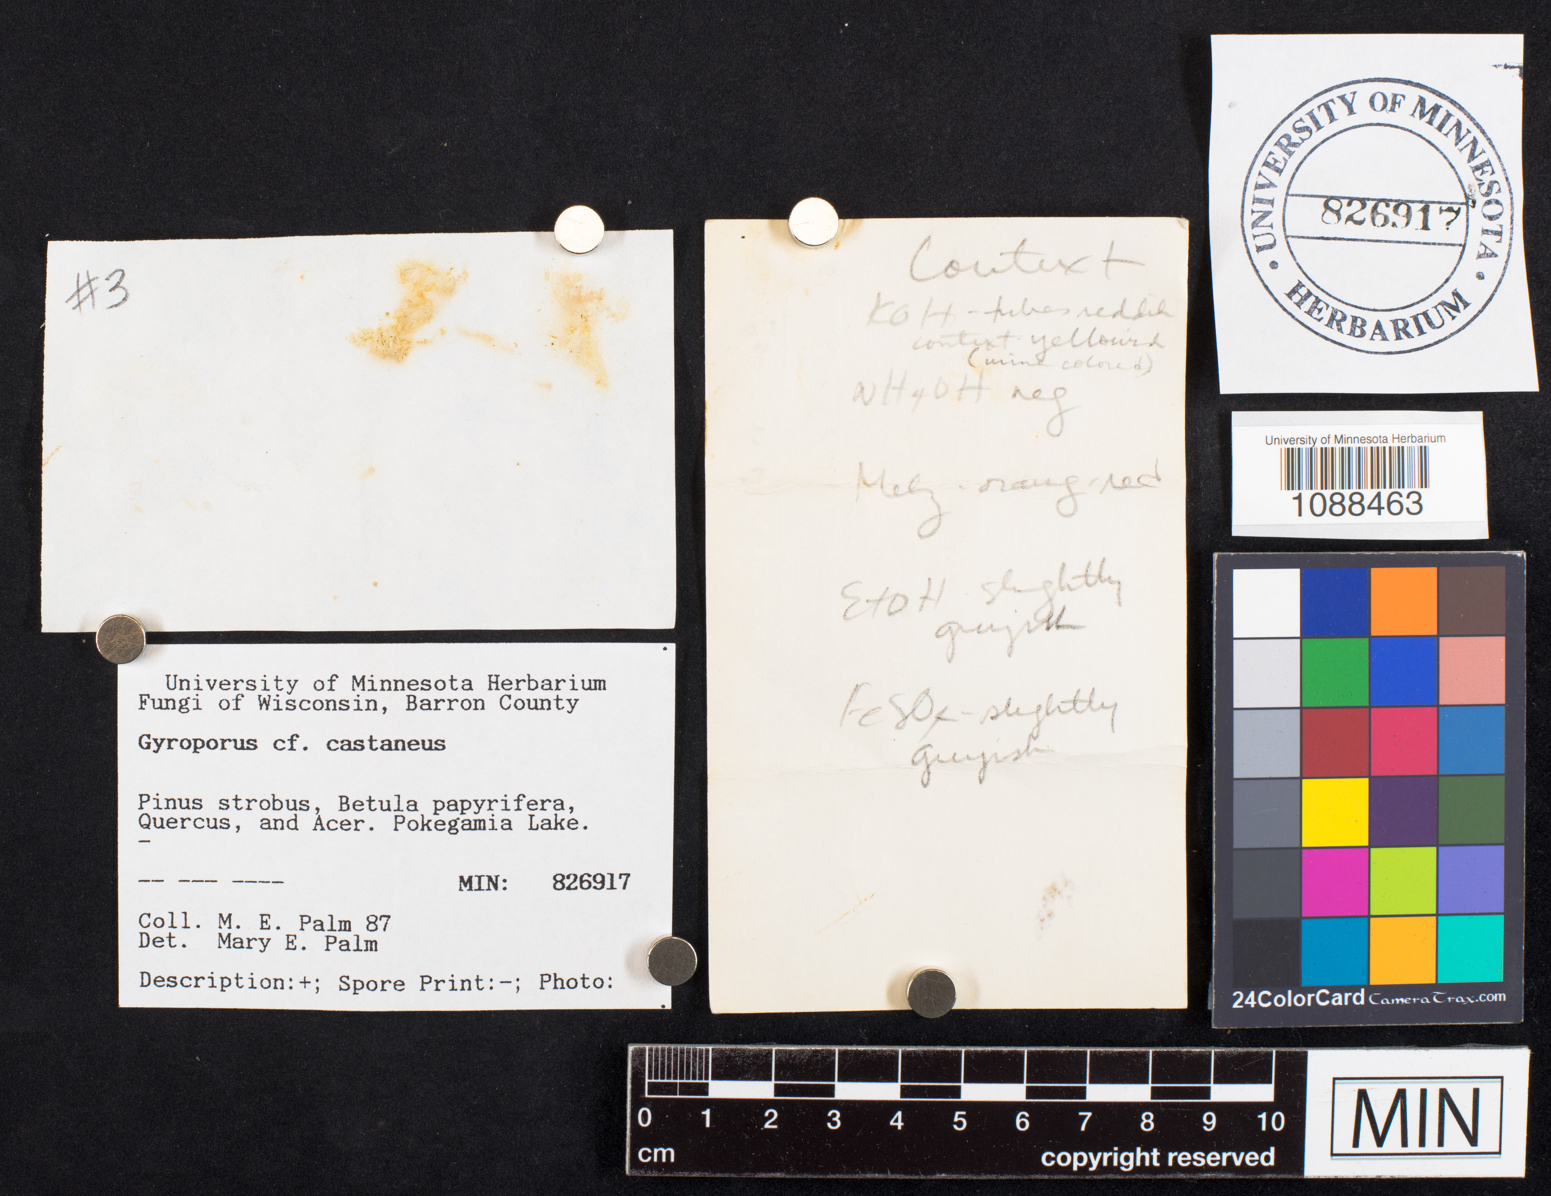 #3
University of Minnesota Herbarium
Fungi of Wisconsin, Barron County
Gyroporus cf. castaneus
Pinus strobus, Betula papyrifera,
Quercus, and Acer. Pokegamia Lake.
–
-- --- ----
MIN: 826917
Coll. M. E. Palm 87
Det. Mary E. Palm
Description:+; Spore Print:-; Photo:
Context
KOH - tubes reddish
context yellowish
(wine colored)
NH4OH neg
Melz - orang-red
EtOH slightly
greyish
FeSO4 - slightly
greyish
UNIVERSITY OF MINNESOTA
826917
HERBARIUM
University of Minnesota Herbarium
1088463
24ColorCard CameraTrax.com
0 1 2 3 4 5 6 7 8 9 10
cm
copyright reserved
MIN